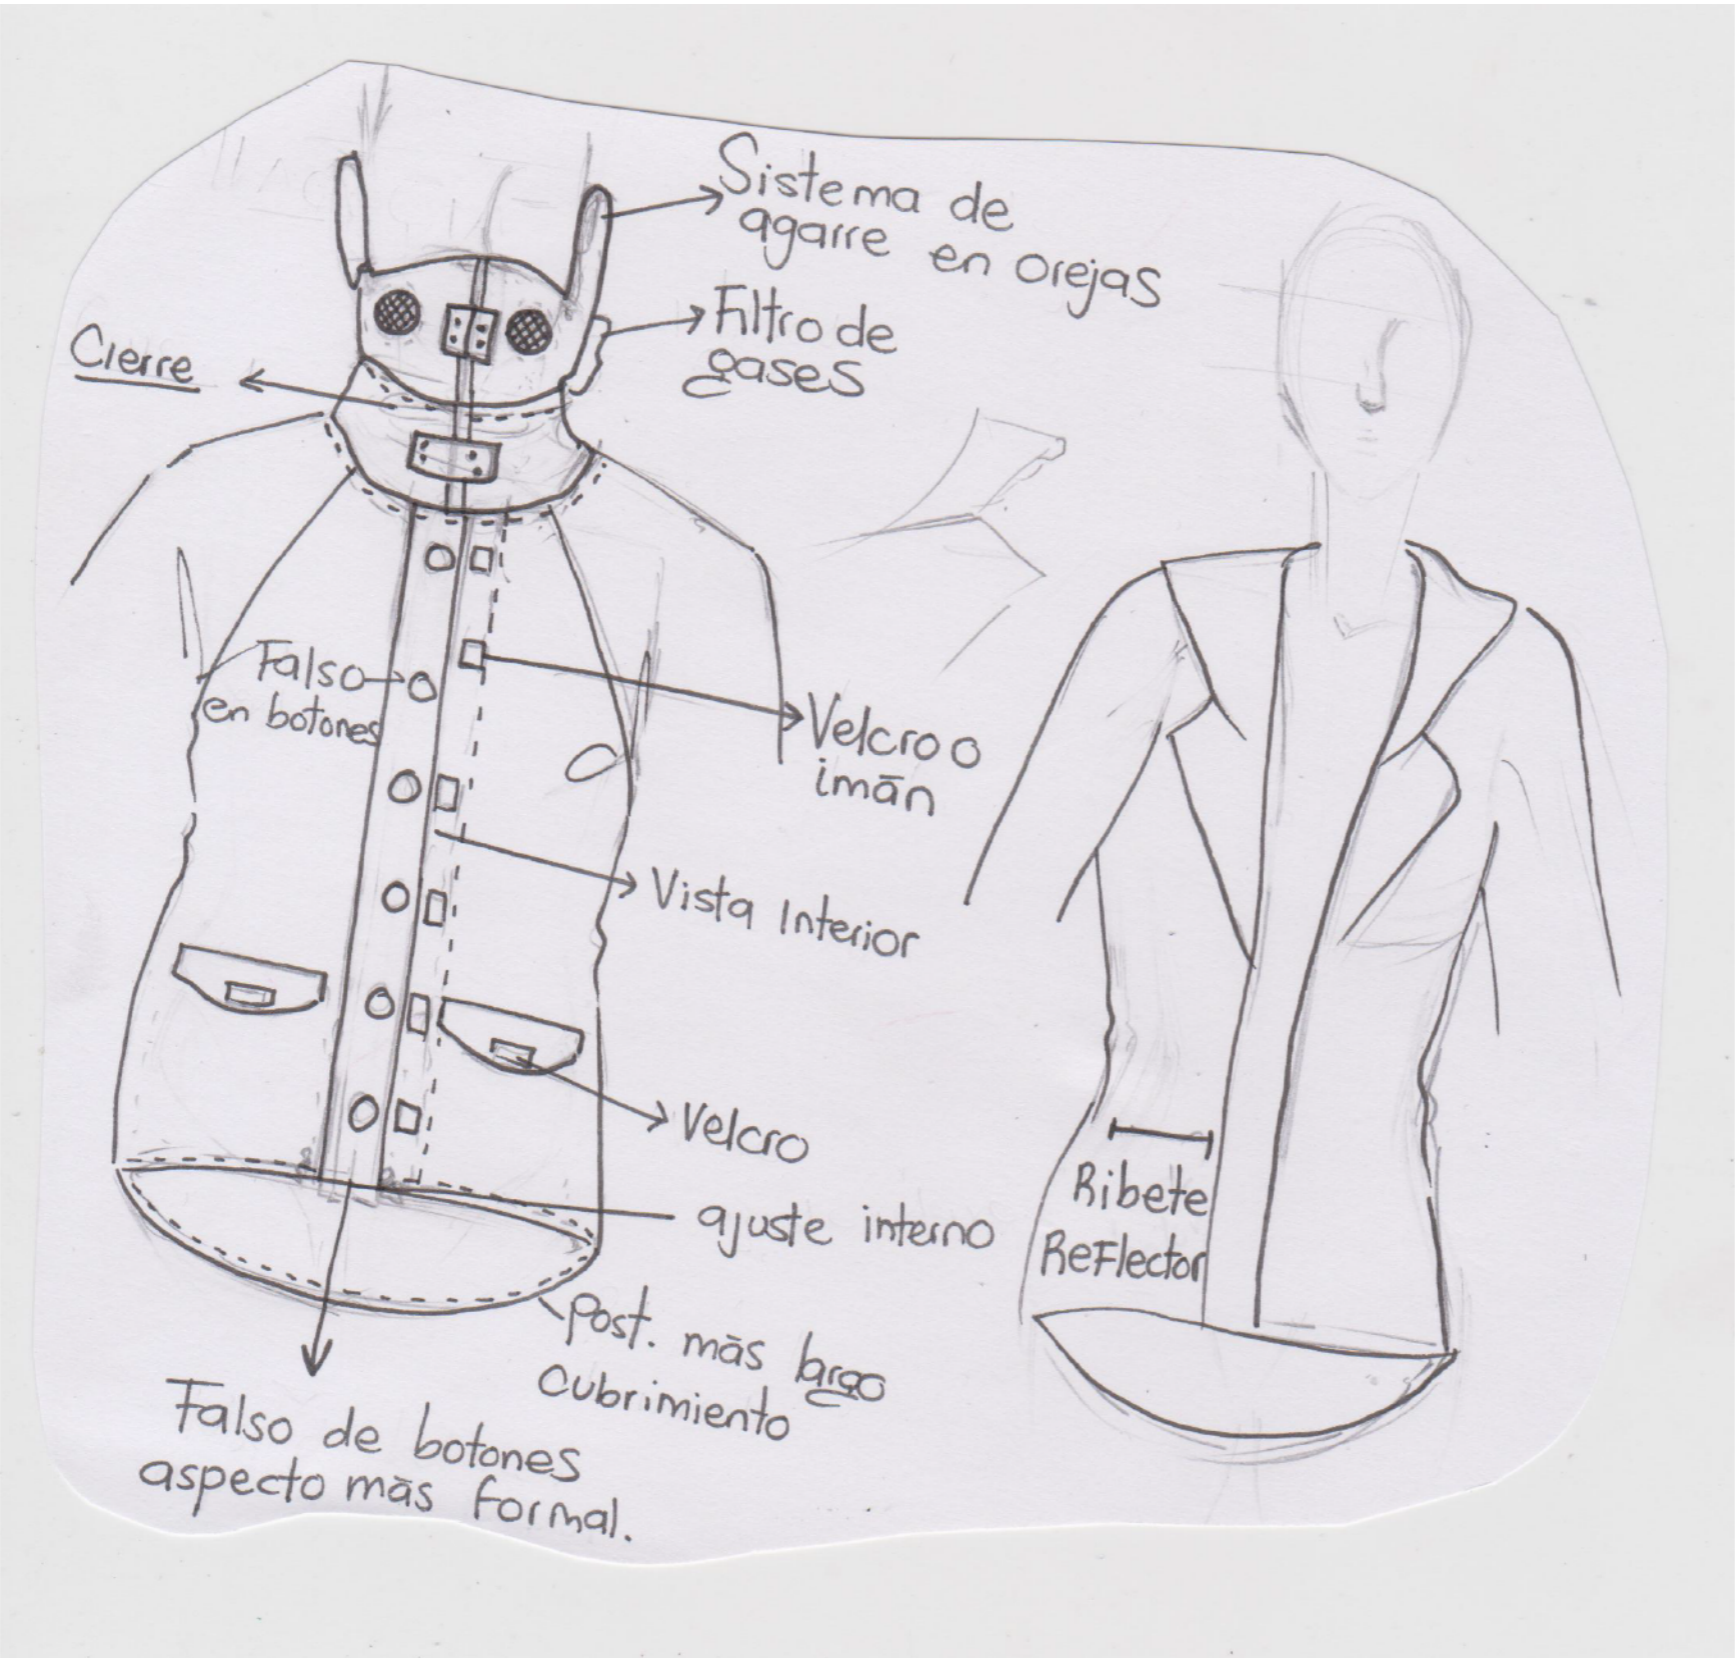 Sistema de
agarre en orejas
Filtro de
gases
Cierre
Falso
en botones
Velcro o
imān
Vista Interior
Velcro
ajuste interno
Post. mās largo
cubrimiento
Falso de botones
aspecto mās formal.
Ribete
Reflector